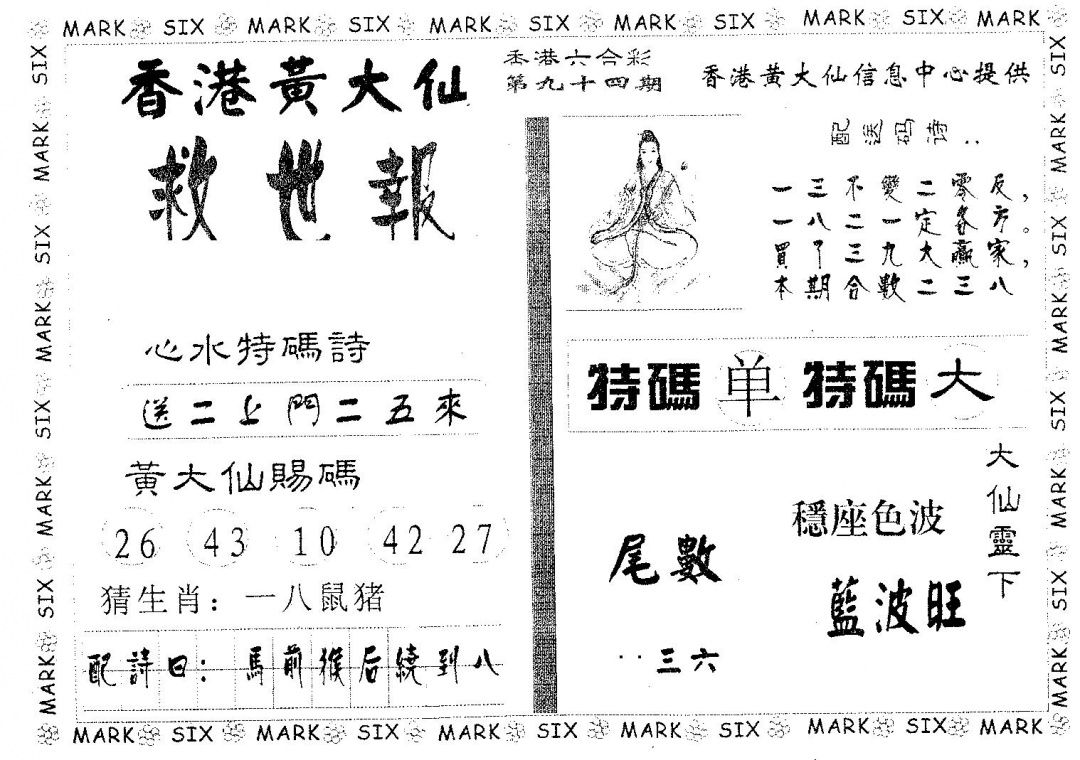 MARK SIX MARK SIX MARK SIX MARK SIX MARK SIX MARK
香港黃大仙
救世報
心水特碼詩
送二上門二五來
黃大仙賜碼
26 43 10 42 27
猜生肖：一八鼠猪
配詩曰：馬前猴后繞到八
香港六合彩
第九十四期
香港黃大仙信息中心提供
配送码诗：
一三不變二零反，
一八二一定各方。
買了三九大贏家，
本期合數二三八
特碼单特碼大
大仙靈下
穩座色波
藍波旺
尾數
三六
MARK SIX MARK SIX MARK SIX MARK SIX MARK SIX MARK
SIX MARK SIX MARK SIX MARK SIX MARK
SIX MARK SIX MARK SIX MARK SIX MARK